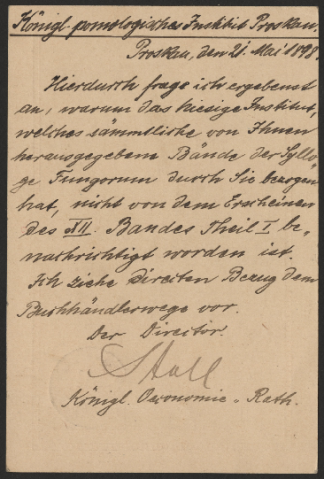 Königl. pomologisches Institut Proskau.
Proskau, den 21. Mai 1898.
Hierdurch frage ich ergebenst
an, warum das hiesige Institut,
welches sämmtliche von Ihnen
herausgegebene Bände der Syllo-
ge Fungorum durch Sie bezogen
hat, nicht von dem Erscheinen
des XII. Bandes Theil I. be-
nachrichtigt worden ist.
Ich ziehe direiten Bezug dem
Buchhändlerwege vor.
Der Director.
Stoll
Königl. Oeconomie-Rath.